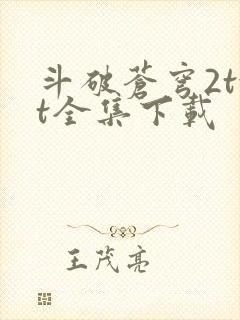 斗破蒼穹2t
t全集下載
王茂亮